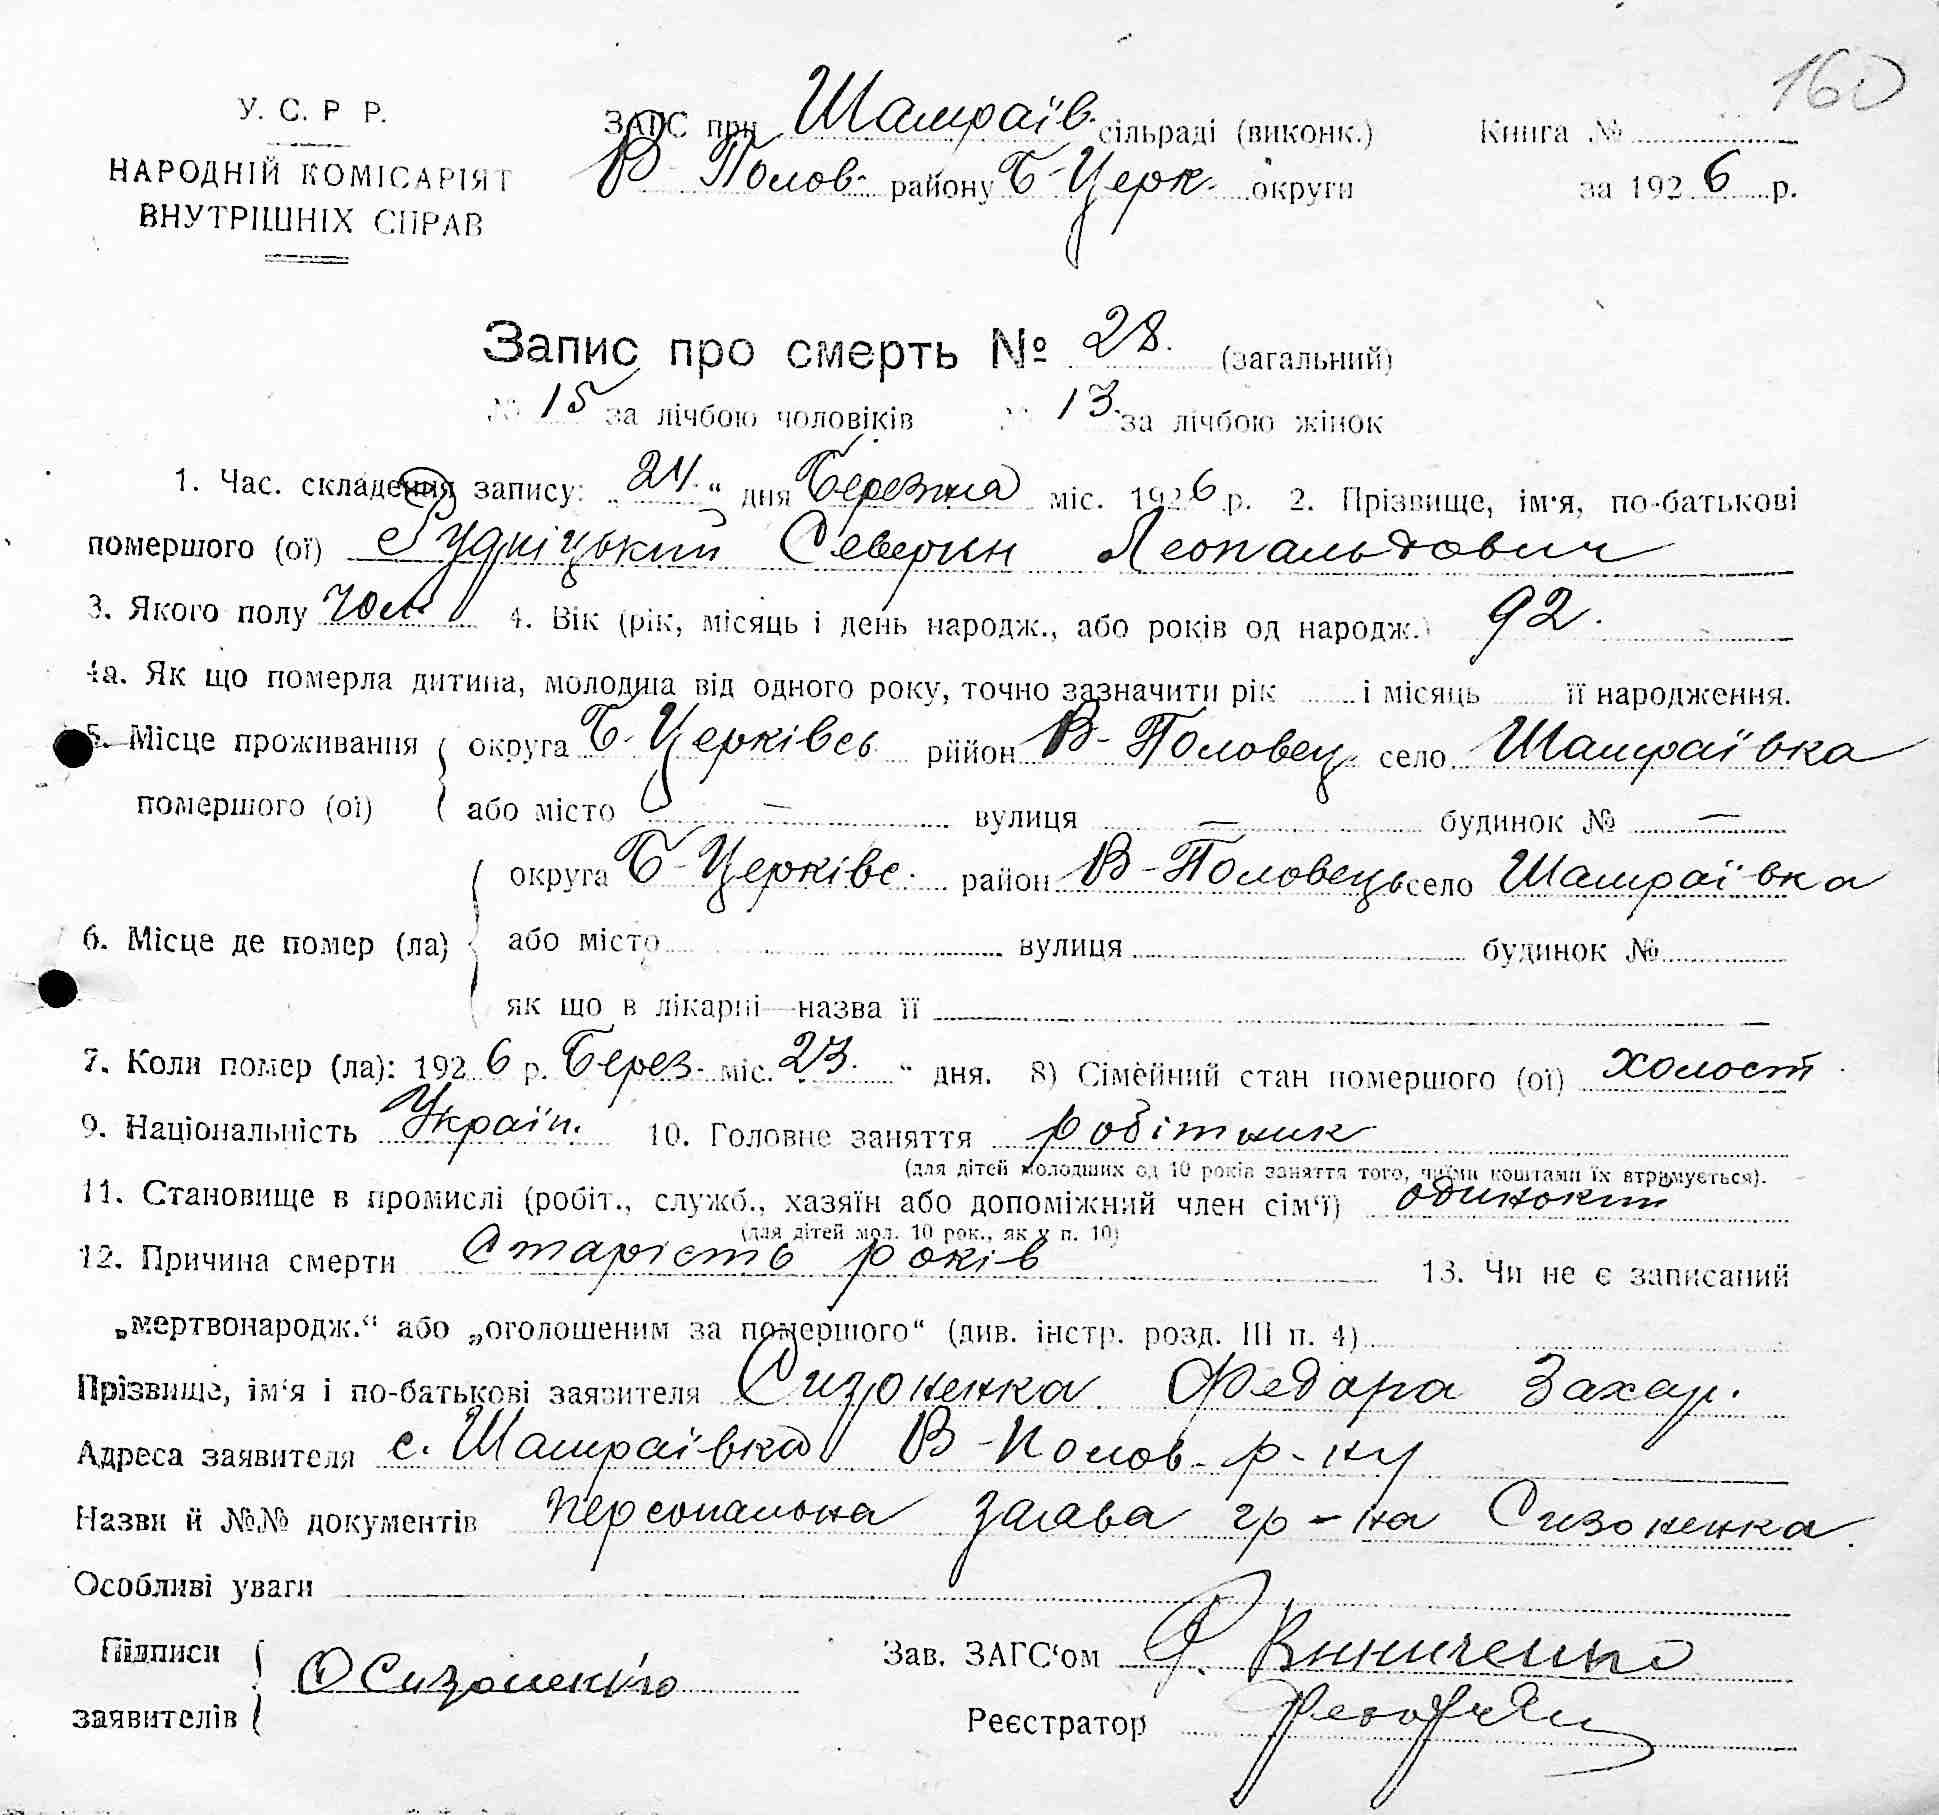 160
У. С. Р Р.
ЗАГС при Шамраїв. сільраді (виконк.) Книга №
НАРОДНІЙ КОМІСАРІЯТ
В-Полов. району Б-Церк. округи за 1926 р.
ВНУТРІШНІХ СПРАВ
Запис про смерть № 28. (загальний)
№ 15 за лічбою чоловіків № 13. за лічбою жінок
1. Час. складення запису: „24.“ дня Березня міс. 1926 р. 2. Прізвище, ім‘я, по-батькові
помершого (ої) Рудніцький Северин Леопальдович
3. Якого полу чол. 4. Вік (рік, місяць і день народж., або років од народж.) 92.
4а. Як що померла дитина, молодша від одного року, точно зазначити рік і місяць її народження.
5. Місце проживання округа Б-Церківсь район В-Половец. село Шамраївка
помершого (ої) або місто — вулиця — будинок № —
округа Б-Церківс. район В-Половець село Шамраївка
6. Місце де помер (ла) або місто вулиця будинок №
як що в лікарні—назва її
7. Коли помер (ла): 1926 р. Берез. міс. 23. “ дня. 8) Сімейний стан помершого (ої) холост
9. Національність Україн. 10. Головне заняття робітник
(для дітей молодших од 10 років заняття того, чиїми коштами їх втримується).
11. Становище в промислі (робіт., служб., хазяїн або допоміжний член сім‘ї) одинокий
(для дітей мол. 10 рок., як у п. 10)
12. Причина смерти Старість років 13. Чи не є записаний
„мертвонародж.“ або „оголошеним за помершого“ (див. інстр. розд. III п. 4)
Прізвище, ім‘я і по-батькові заявителя Сизоненка Федора Захар.
Адреса заявителя с. Шамраївка В-Полов. р-ну
Назви й №№ документів персональна заява гр-на Сизоненка.
Особливі уваги
Підписи
Зав. ЗАГС‘ом Винниченко
Сизоненко
заявителів
Реєстратор